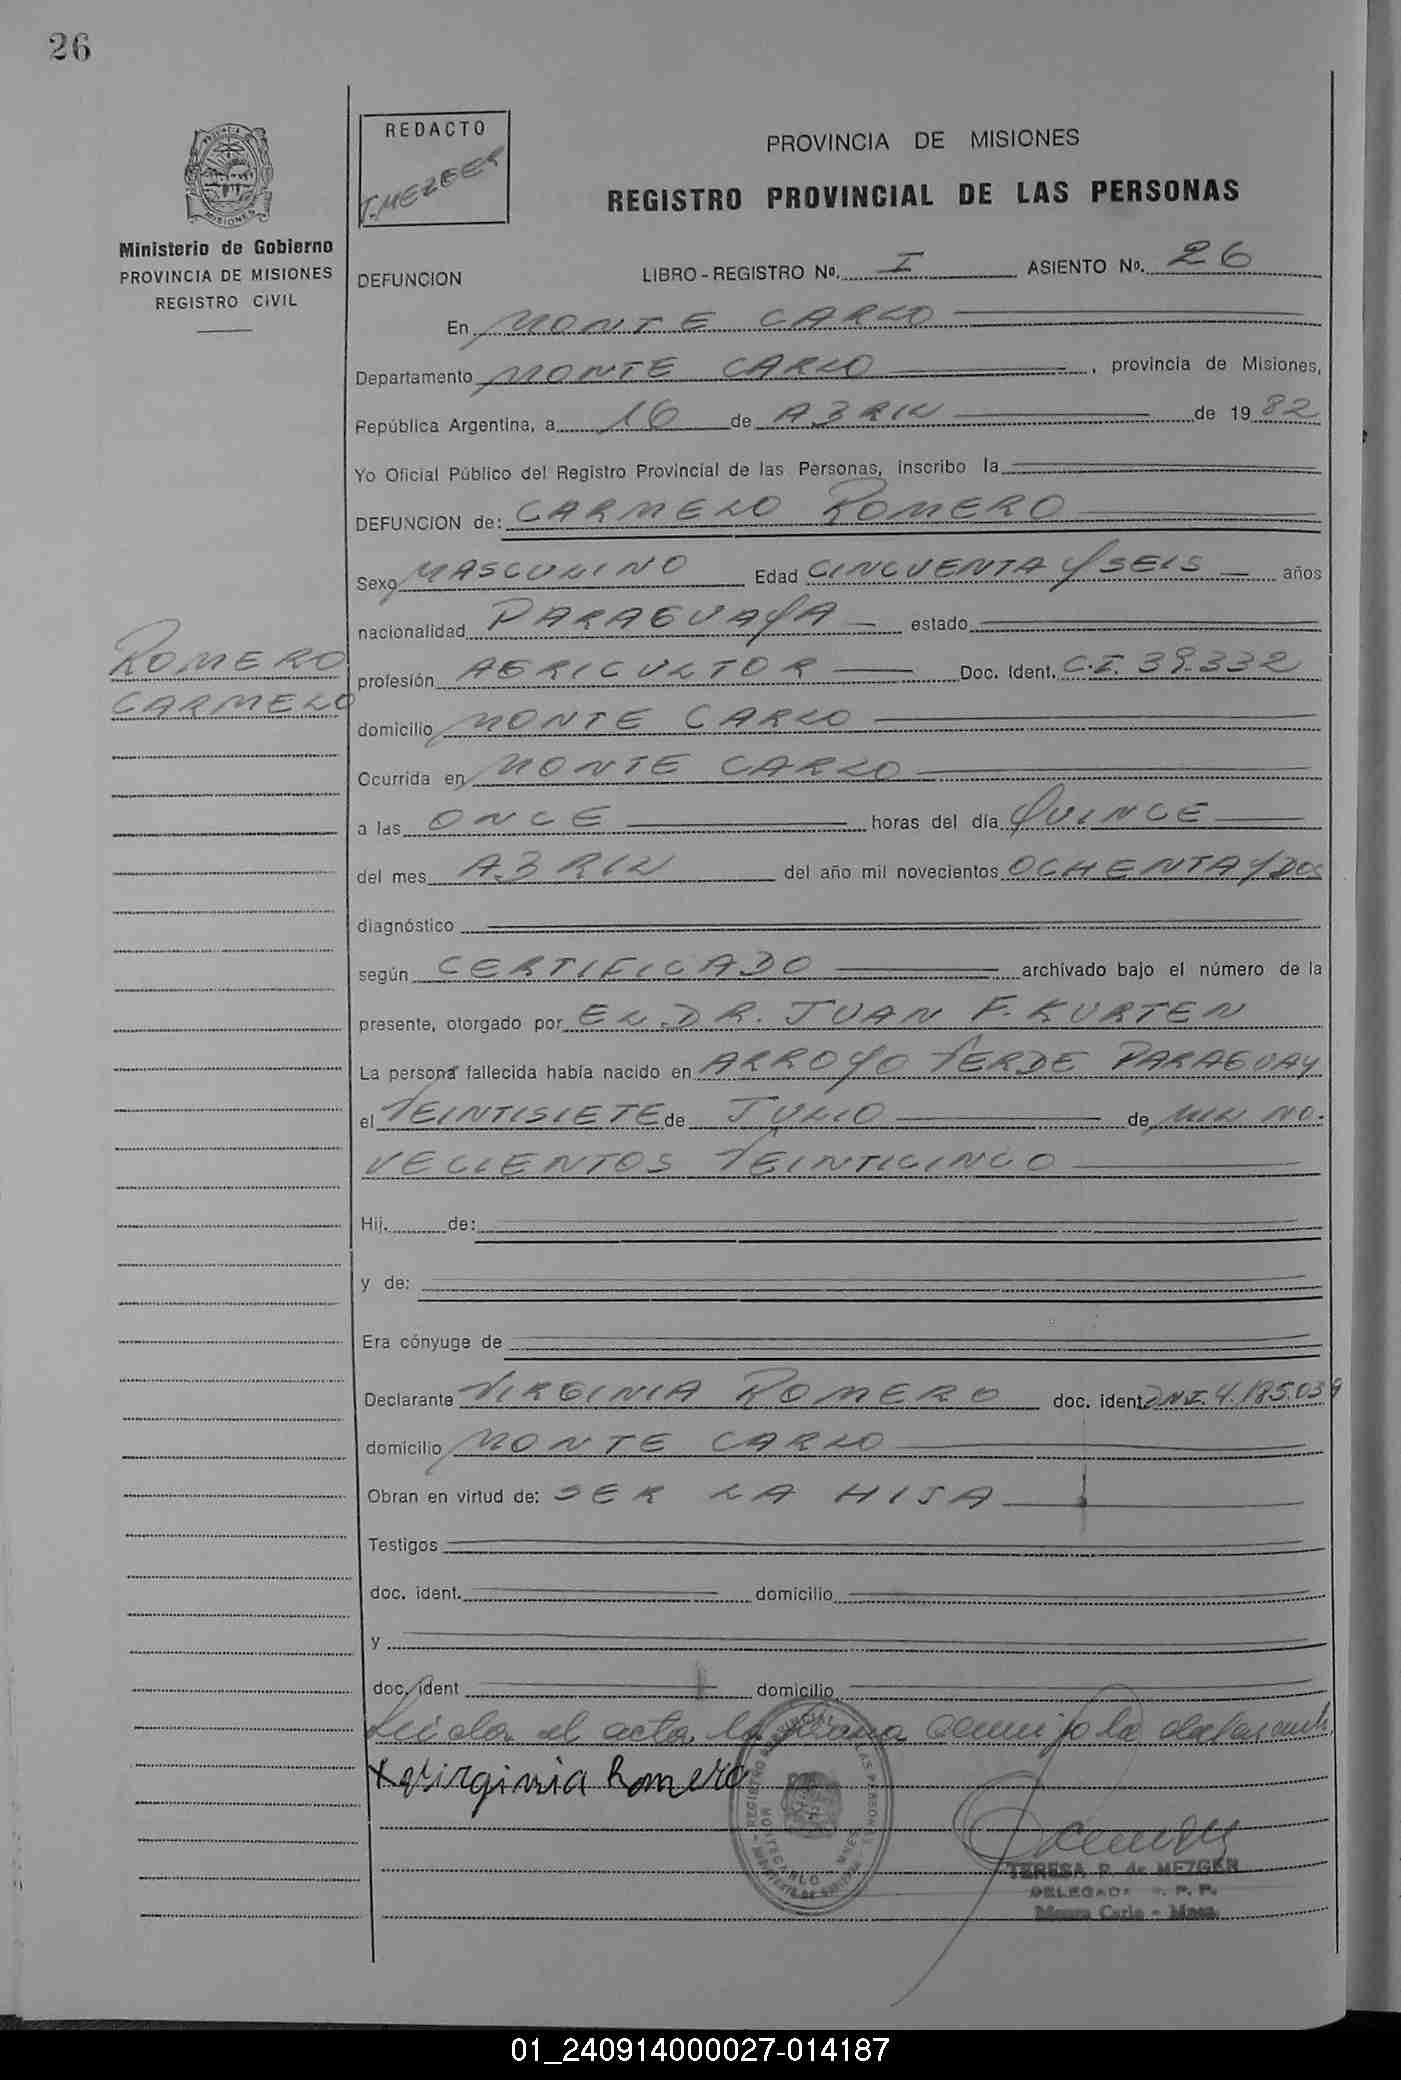 26
REDACTO
T. MEZGER
PROVINCIA DE MISIONES
REGISTRO PROVINCIAL DE LAS PERSONAS
Ministerio de Gobierno
PROVINCIA DE MISIONES
REGISTRO CIVIL
DEFUNCION LIBRO - REGISTRO No. I ASIENTO No. 26
En MONTE CARLO
Departamento MONTE CARLO , provincia de Misiones,
República Argentina, a 16 de ABRIL de 19 82
Yo Oficial Público del Registro Provincial de las Personas, inscribo la
DEFUNCION de: CARMELO ROMERO
Sexo MASCULINO Edad CINCUENTA Y SEIS años
nacionalidad PARAGUAYA estado
ROMERO
CARMELO
profesión AGRICULTOR Doc. Ident. C.I. 39.332
domicilio MONTE CARLO
Ocurrida en MONTE CARLO
a las ONCE horas del día QUINCE
del mes ABRIL del año mil novecientos OCHENTA Y DOS
diagnóstico
según CERTIFICADO archivado bajo el número de la
presente, otorgado por EL DR. JUAN F. KURTEN
La persona fallecida había nacido en ARROYO VERDE PARAGUAY
el VEINTISIETE de JULIO de MIL NO-
VECIENTOS VEINTICINCO
Hij. de:
y de:
Era cónyuge de
Declarante VIRGINIA ROMERO doc. ident DNI. 4.185.039
domicilio MONTE CARLO
Obran en virtud de: SER LA HIJA
Testigos
doc. ident. domicilio
y
doc. ident domicilio
Leida el acta la firma conmigo la declarante
x Virginia Romero
REGISTRO PROVINCIAL DE LAS PERSONAS
MONTECARLO MNES
TERESA R. de MEZGER
DELEGADA R. P. P.
Monte Carlo - Mnes.
01_240914000027-014187